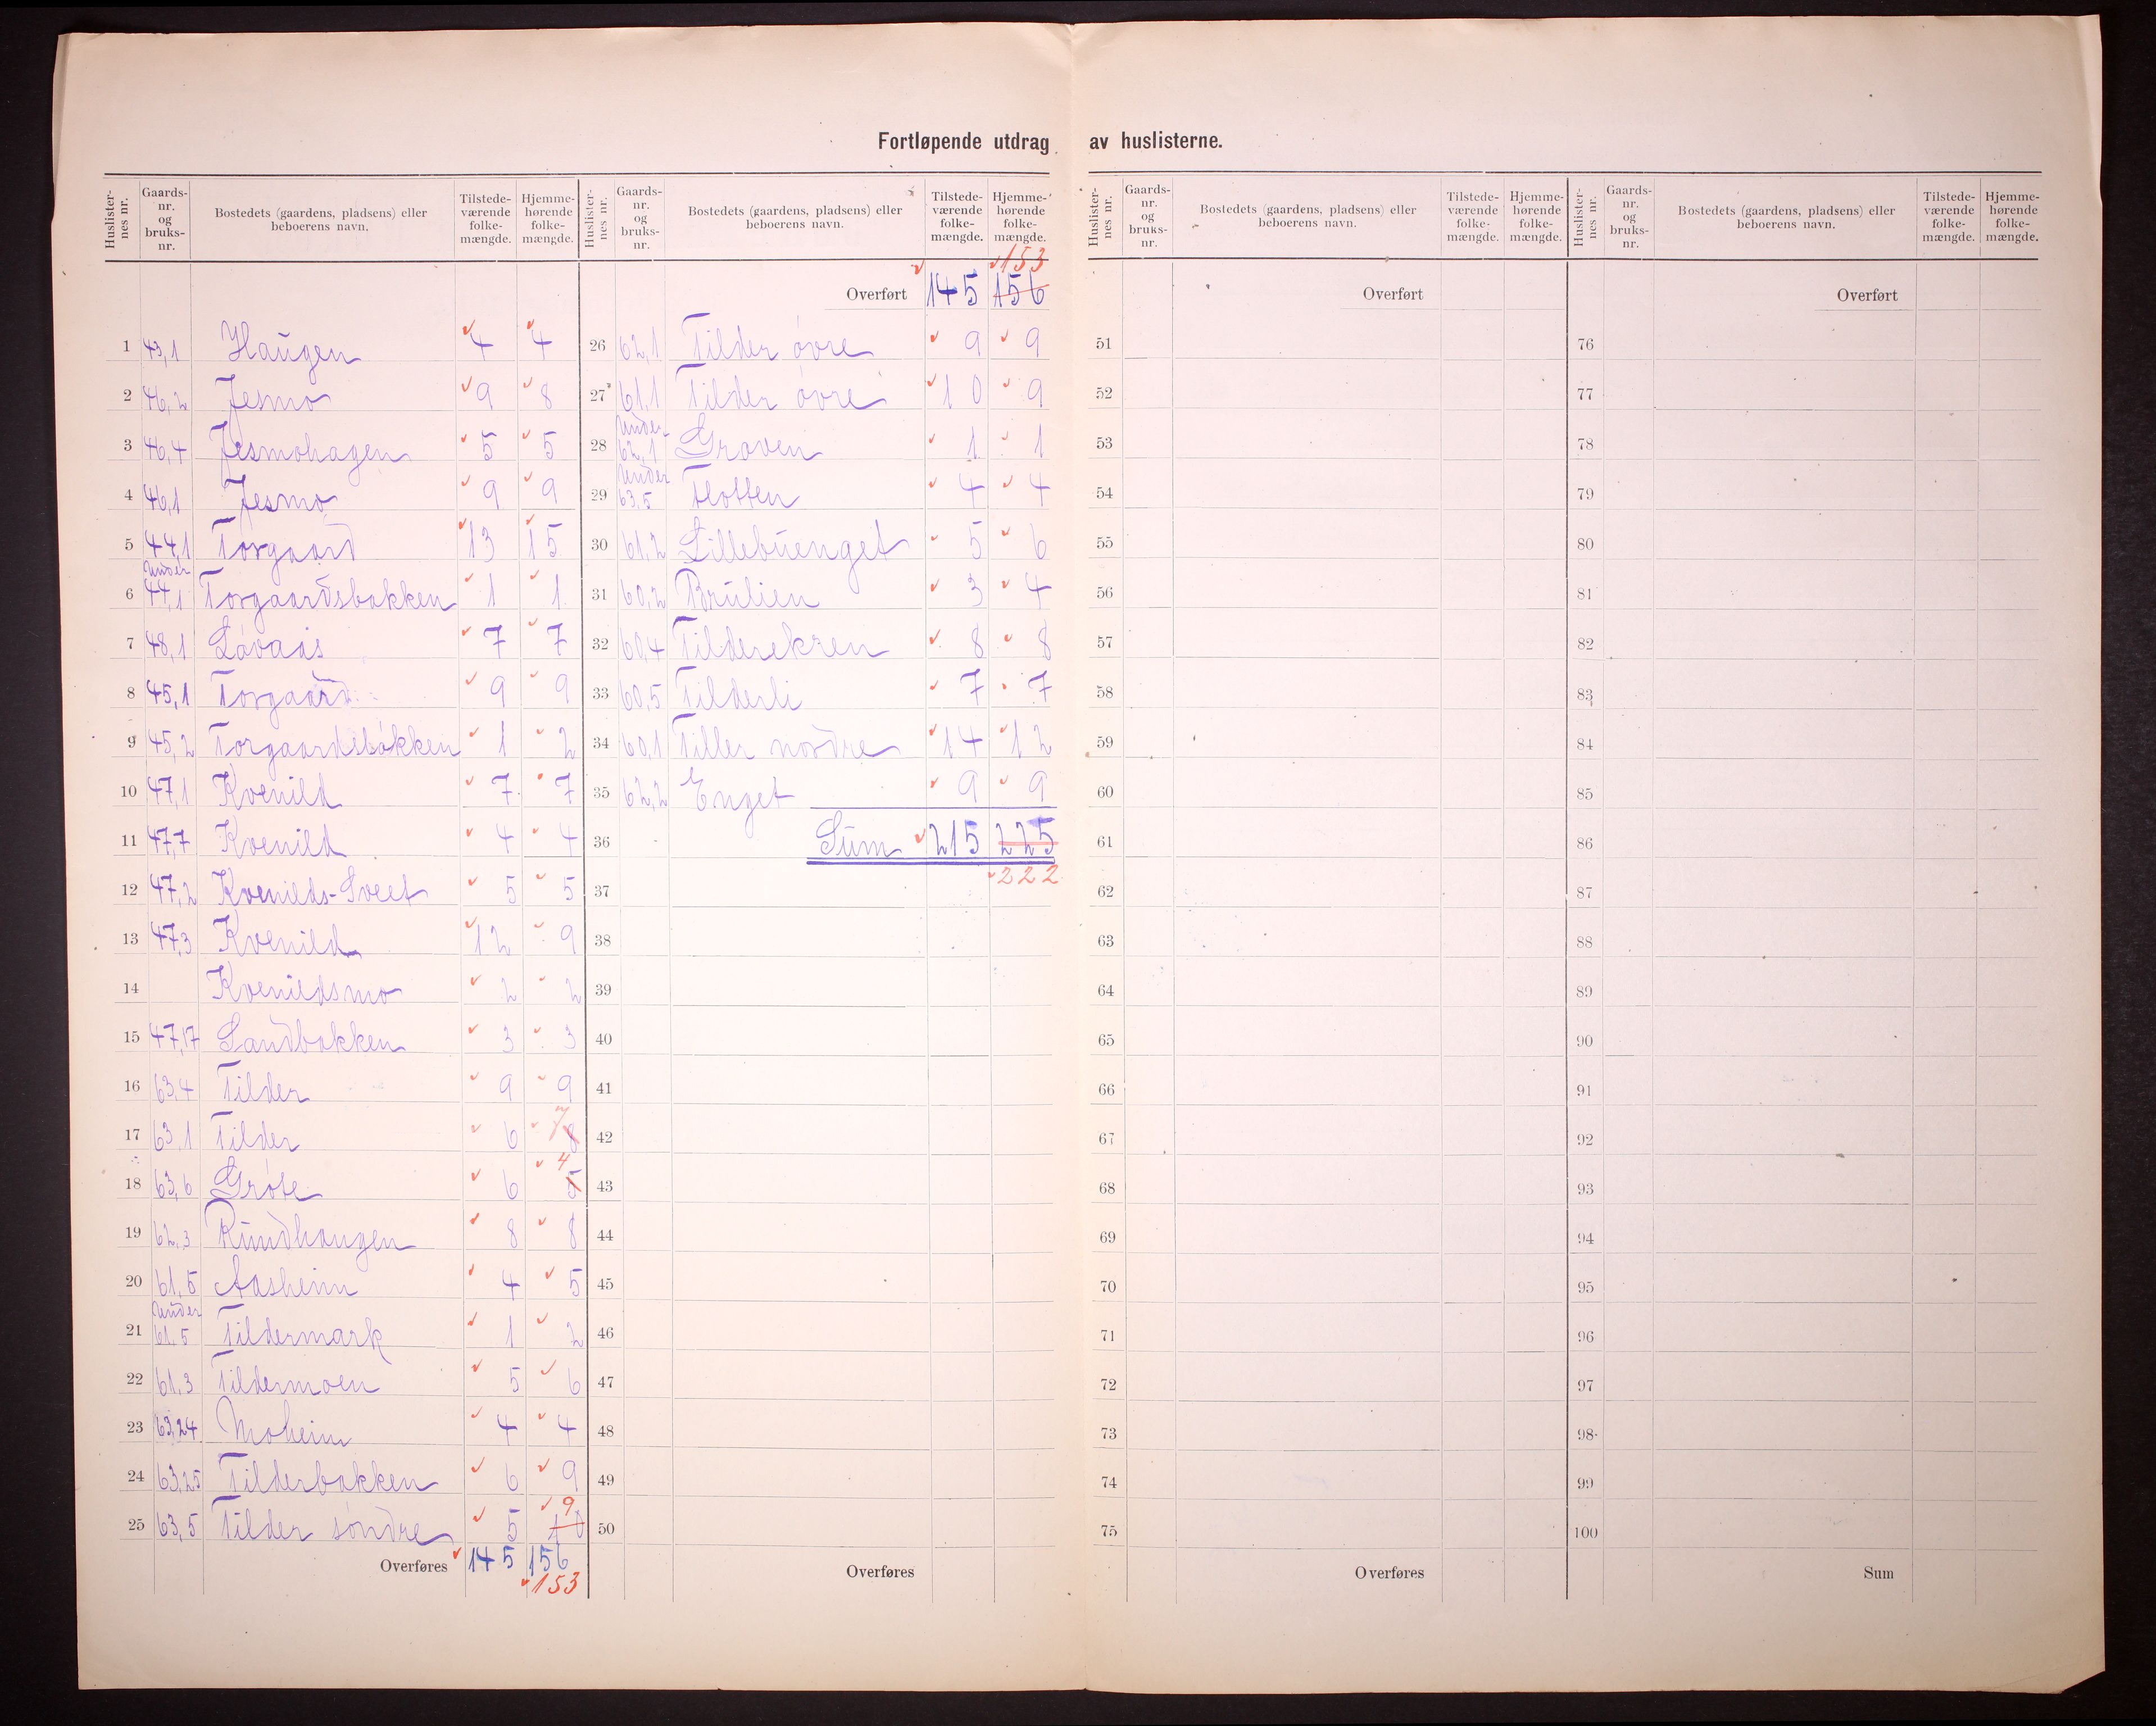 Fortløpende utdrag av huslisterne.
Huslister-nes nr. Gaards-nr. og bruks-nr. Bostedets (gaardens, pladsens) eller beboerens navn. Tilstede-værende folke-mængde. Hjemme-hørende folke-mængde.
1 43,1 Haugen 4 4
2 46,2 Jesmo 9 8
3 46,4 Jesmohagen 5 5
4 46,1 Jesmo 9 9
5 44,1 Torgaard 13 15
6 Under 44,1 Torgaardsbakken 1 1
7 48,1 Løvaas 7 7
8 45,1 Torgaard 9 9
9 45,2 Torgaardsbakken 1 2
10 47,1 Kvenild 7 7
11 47,7 Kvenild 4 4
12 47,2 Kvenilds-Sveet 5 5
13 47,3 Kvenild 12 9
14 Kvenildsmo 2 2
15 47,17 Sandbakken 3 3
16 63,4 Tilder 9 9
17 63,1 Tilder 6 8 7
18 63,6 Grøte 6 5 4
19 62,3 Rundhaugen 8 8
20 61,5 Aasheim 4 5
21 Under 61,5 Tildermark 1 2
22 61,3 Tildermoen 5 6
23 63,24 Moheim 4 4
24 63,25 Tilderbakken 6 9
25 63,5 Tilder søndre 5 10 9
Overføres 145 156
153
Huslister-nes nr. Gaards-nr. og bruks-nr. Bostedets (gaardens, pladsens) eller beboerens navn. Tilstede-værende folke-mængde. Hjemme-hørende folke-mængde.
153
Overført 145 156
26 62,1 Tilder øvre 9 9
27 61,1 Tilder øvre 10 9
28 Under 62,1 Graven 1 1
29 Under 63,5 Flotten 4 4
30 61,2 Lillebuenget 5 6
31 60,2 Brulien 3 4
32 60,4 Tilderekren 8 8
33 60,5 Tilderli 7 7
34 60,1 Tiller nordre 14 12
35 62,2 Enget 9 9
36 Sum 215 225
37 222
38
39
40
41
42
43
44
45
46
47
48
49
50
Overføres
Huslister-nes nr. Gaards-nr. og bruks-nr. Bostedets (gaardens, pladsens) eller beboerens navn. Tilstede-værende folke-mængde. Hjemme-hørende folke-mængde.
Overført
51
52
53
54
55
56
57
58
59
60
61
62
63
64
65
66
67
68
69
70
71
72
73
74
75
Overføres
Huslister-nes nr. Gaards-nr. og bruks-nr. Bostedets (gaardens, pladsens) eller beboerens navn. Tilstede-værende folke-mængde. Hjemme-hørende folke-mængde.
Overført
76
77
78
79
80
81
82
83
84
85
86
87
88
89
90
91
92
93
94
95
96
97
98
99
100
Sum